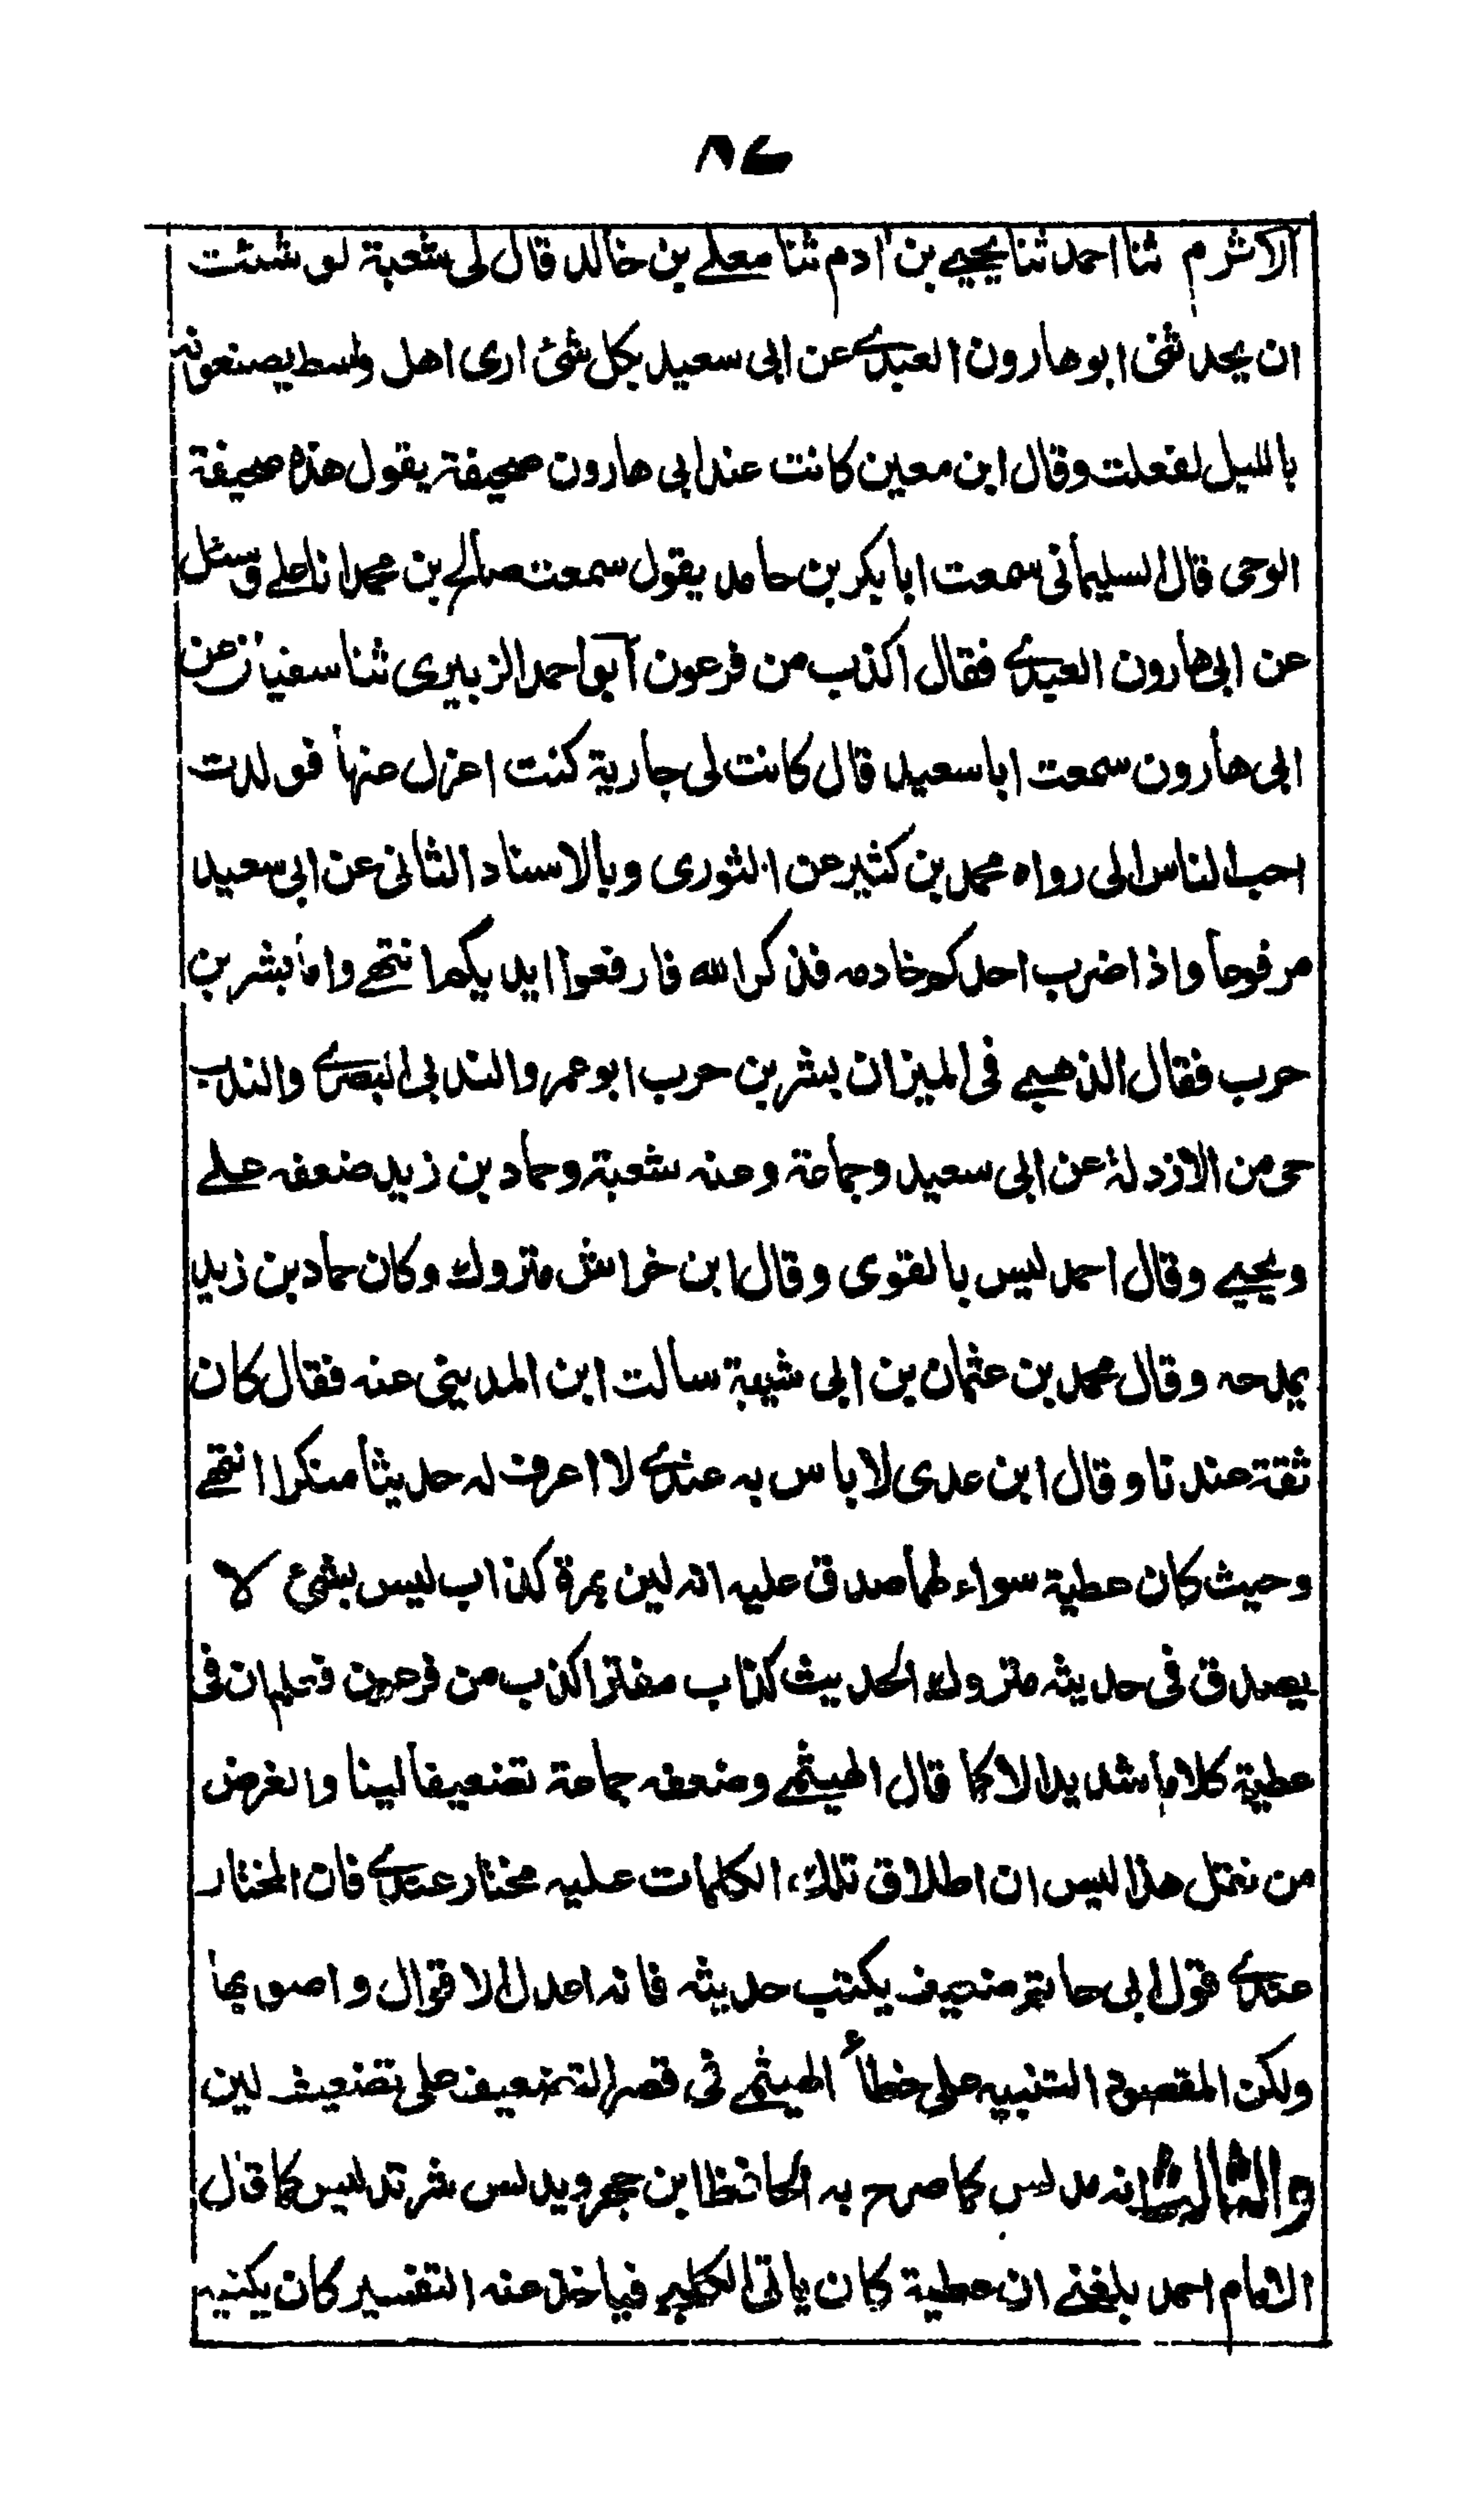 ٨٦
الاثرم ثنا احمد ثنا يحيے بن ادم ثنا معلے بن خالد قال لى شعبة لو شئت
ان يحدثنى ابو هارون العبدے عن ابى سعيد بكل شئ ارى اهل واسط يصنعونه
بالليل لفعلت وقال ابن معين كانت عند ابى هارون صحيفة يقول هذه صحيفة
الوحى قال السليمانى سمعت ابا بكر بن حامد يقول سمعت صالح بن محمد ابا علے وسئل
عن ابى هارون العبدے فقال اكذب من فرعون ابو احمد الزبيرى ثنا سفيان عن
ابى هارون سمعت ابا سعيد قال كانت لى جارية كنت اعزل عنها فولدت
احب الناس الى رواه محمد بن كثير عن الثورى وبالاسناد الثانى عن ابى سعيد
مرفوعا واذا ضرب احدكم خادمه فذكر الله فارفعوا ايديكم انتهے واما بشر بن
حرب فقال الذهبے فى الميزان بشر بن حرب ابو عمرو الندبى البصرے والندب
حى من الازد له عن ابى سعيد وجماعة وعنه شعبة وحماد بن زيد ضعفه علے
ويحيے وقال احمد ليس بالقوى وقال ابن خراش متروك وكان حماد بن زيد
يمدحه وقال محمد بن عثمان بن ابى شيبة سالت ابن المدينى عنه فقال كان
ثقة عندنا وقال ابن عدى لا باس به عندے لا اعرف له حديثا منكرا انتهے
وحيث كان عطية سواء لهما صدق عليه انه لين بمرة كذاب ليس بشئ لا
يصدق فى حديثه متروك الحديث كذاب مفتر اكذب من فرعون فتلم ان فى
عطية كلاما شديدا لا كما قال الهيثمے وضعفه جماعة تضعيفا لينا والغرض
من نقل هذا ليس ان اطلاق تلك الكلمات عليه مختار عندے فان المختار
عندے قول ابى حاتم ضعيف يكتب حديثه فانه اعدل الاقوال واصوبها
ولكن المقصود التنبيه على خطأ الهيثمے فى قصر التضعيف على تضعيف لين
والثالث انه مدلس كما صرح به الحافظ ابن حجر ويدلس شر تدليس كما قال
الامام احمد بلغنے ان عطية كان ياتى الكلبے فياخذ عنه التفسير كان يكنيه